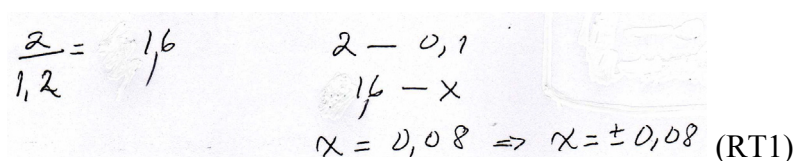 2/1,2 = 1,6
2 — 0,1
1,6 — x
x = 0,08 => x = ± 0,08 (RT1)